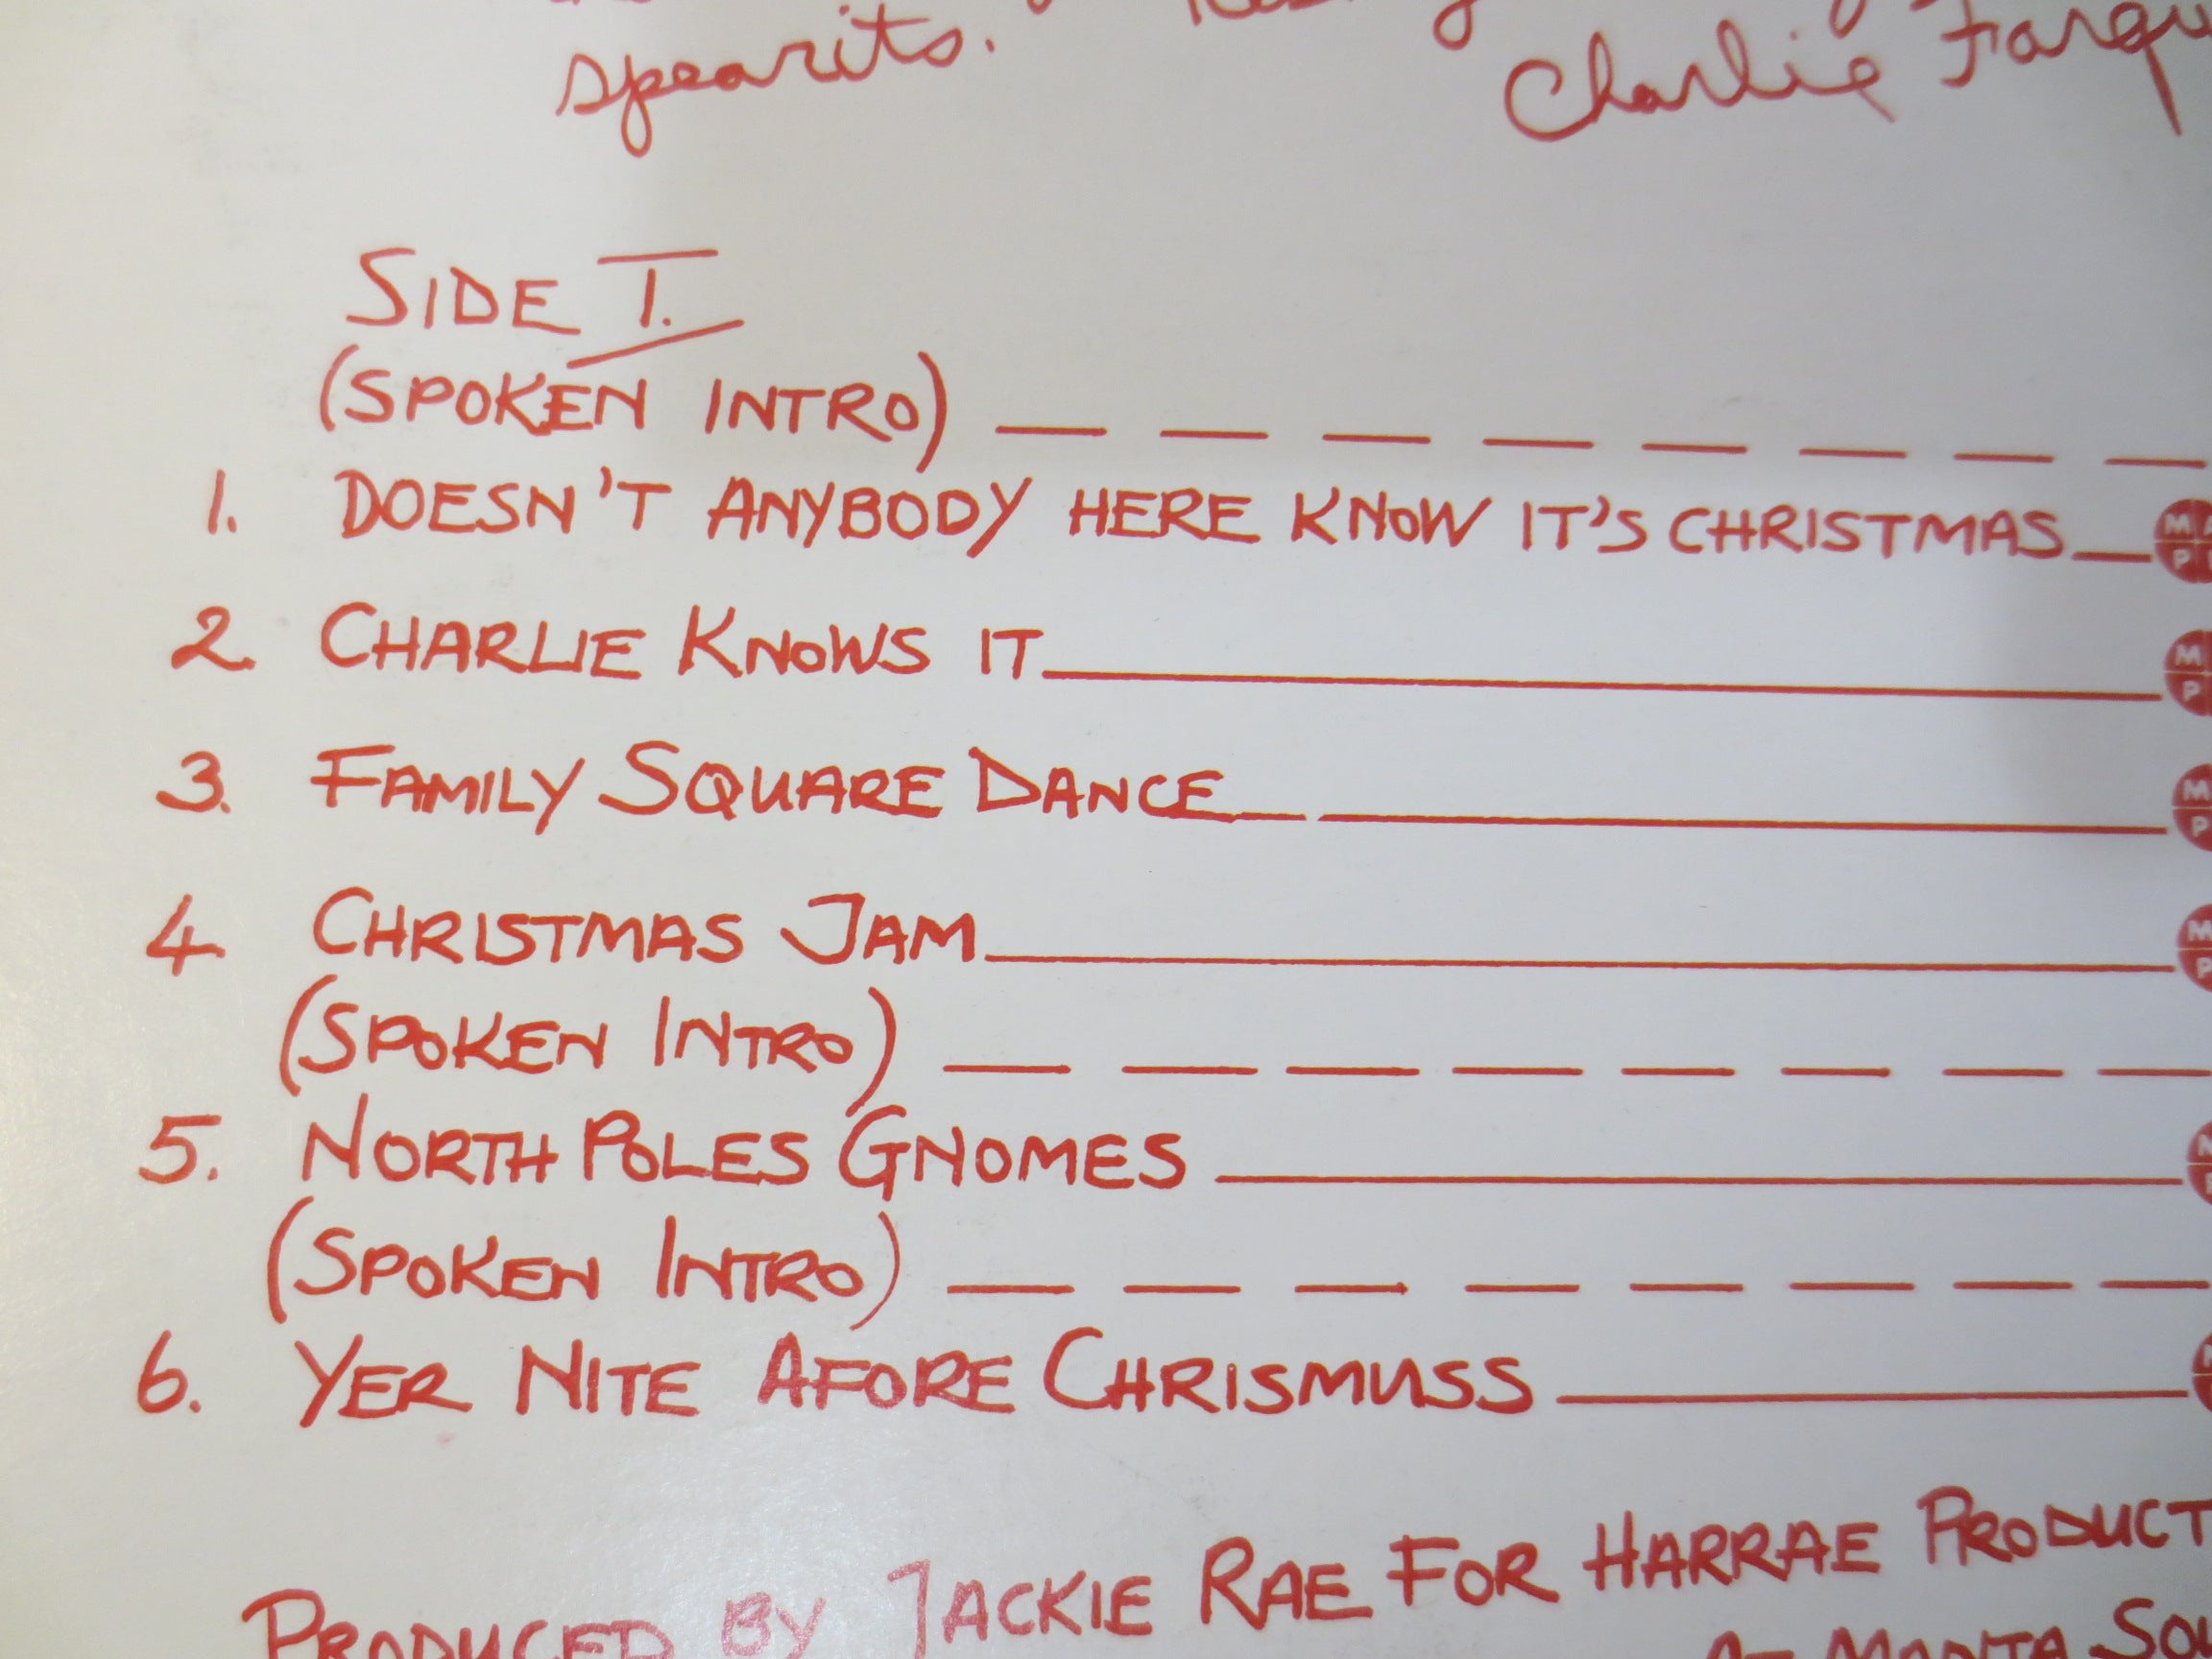 spearits.
Charlie Farqu
SIDE I.
(SPOKEN INTRO) — — — — — — — —
1. DOESN'T ANYBODY HERE KNOW IT'S CHRISTMAS
M
P
2. CHARLIE KNOWS IT
M
P
3. FAMILY SQUARE DANCE
M
P
4 CHRISTMAS JAM
M
P
(SPOKEN INTRO) — — — — — — — —
5. NORTH POLES GNOMES
(SPOKEN INTRO) — — — — — — — —
6. YER NITE AFORE CHRISMUSS
PRODUCED BY JACKIE RAE FOR HARRAE PRODUCT
AT MANTA SOU